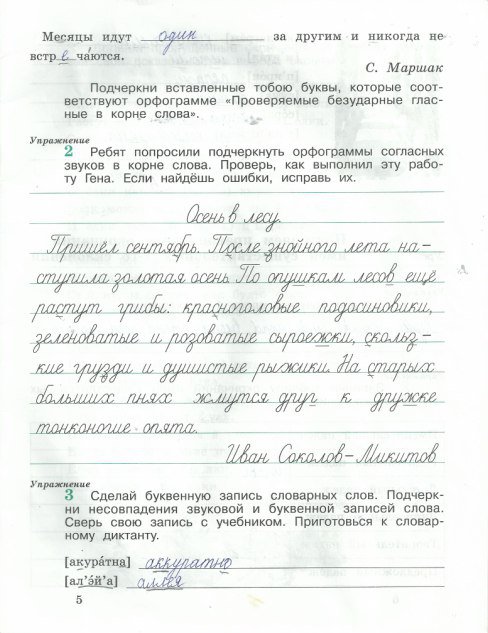 Месяцы идут один за другим и никогда не
встречаются.
С. Маршак
Подчеркни вставленные тобою буквы, которые соот-
ветствуют орфограмме «Проверяемые безударные глас-
ные в корне слова».
Упражнение
2 Ребят попросили подчеркнуть орфограммы согласных
звуков в корне слова. Проверь, как выполнил эту рабо-
ту Гена. Если найдёшь ошибки, исправь их.
Осень в лесу.
Пришёл сентябрь. После знойного лета на-
ступила золотая осень. По опушкам лесов ещё
растут грибы: красноголовые подосиновики,
зеленоватые и розоватые сыроежки, сколь-
зкие грузди и душистые рыжики. На старых
больших пнях жмутся друг к дружке
тонконогие опята.
Иван Соколов-Микитов
Упражнение
3 Сделай буквенную запись словарных слов. Подчерк-
ни несовпадения звуковой и буквенной записей слова.
Сверь свою запись с учебником. Приготовься к словар-
ному диктанту.
[акура́тна] аккуратно
[ал'э́й'а] аллея
5